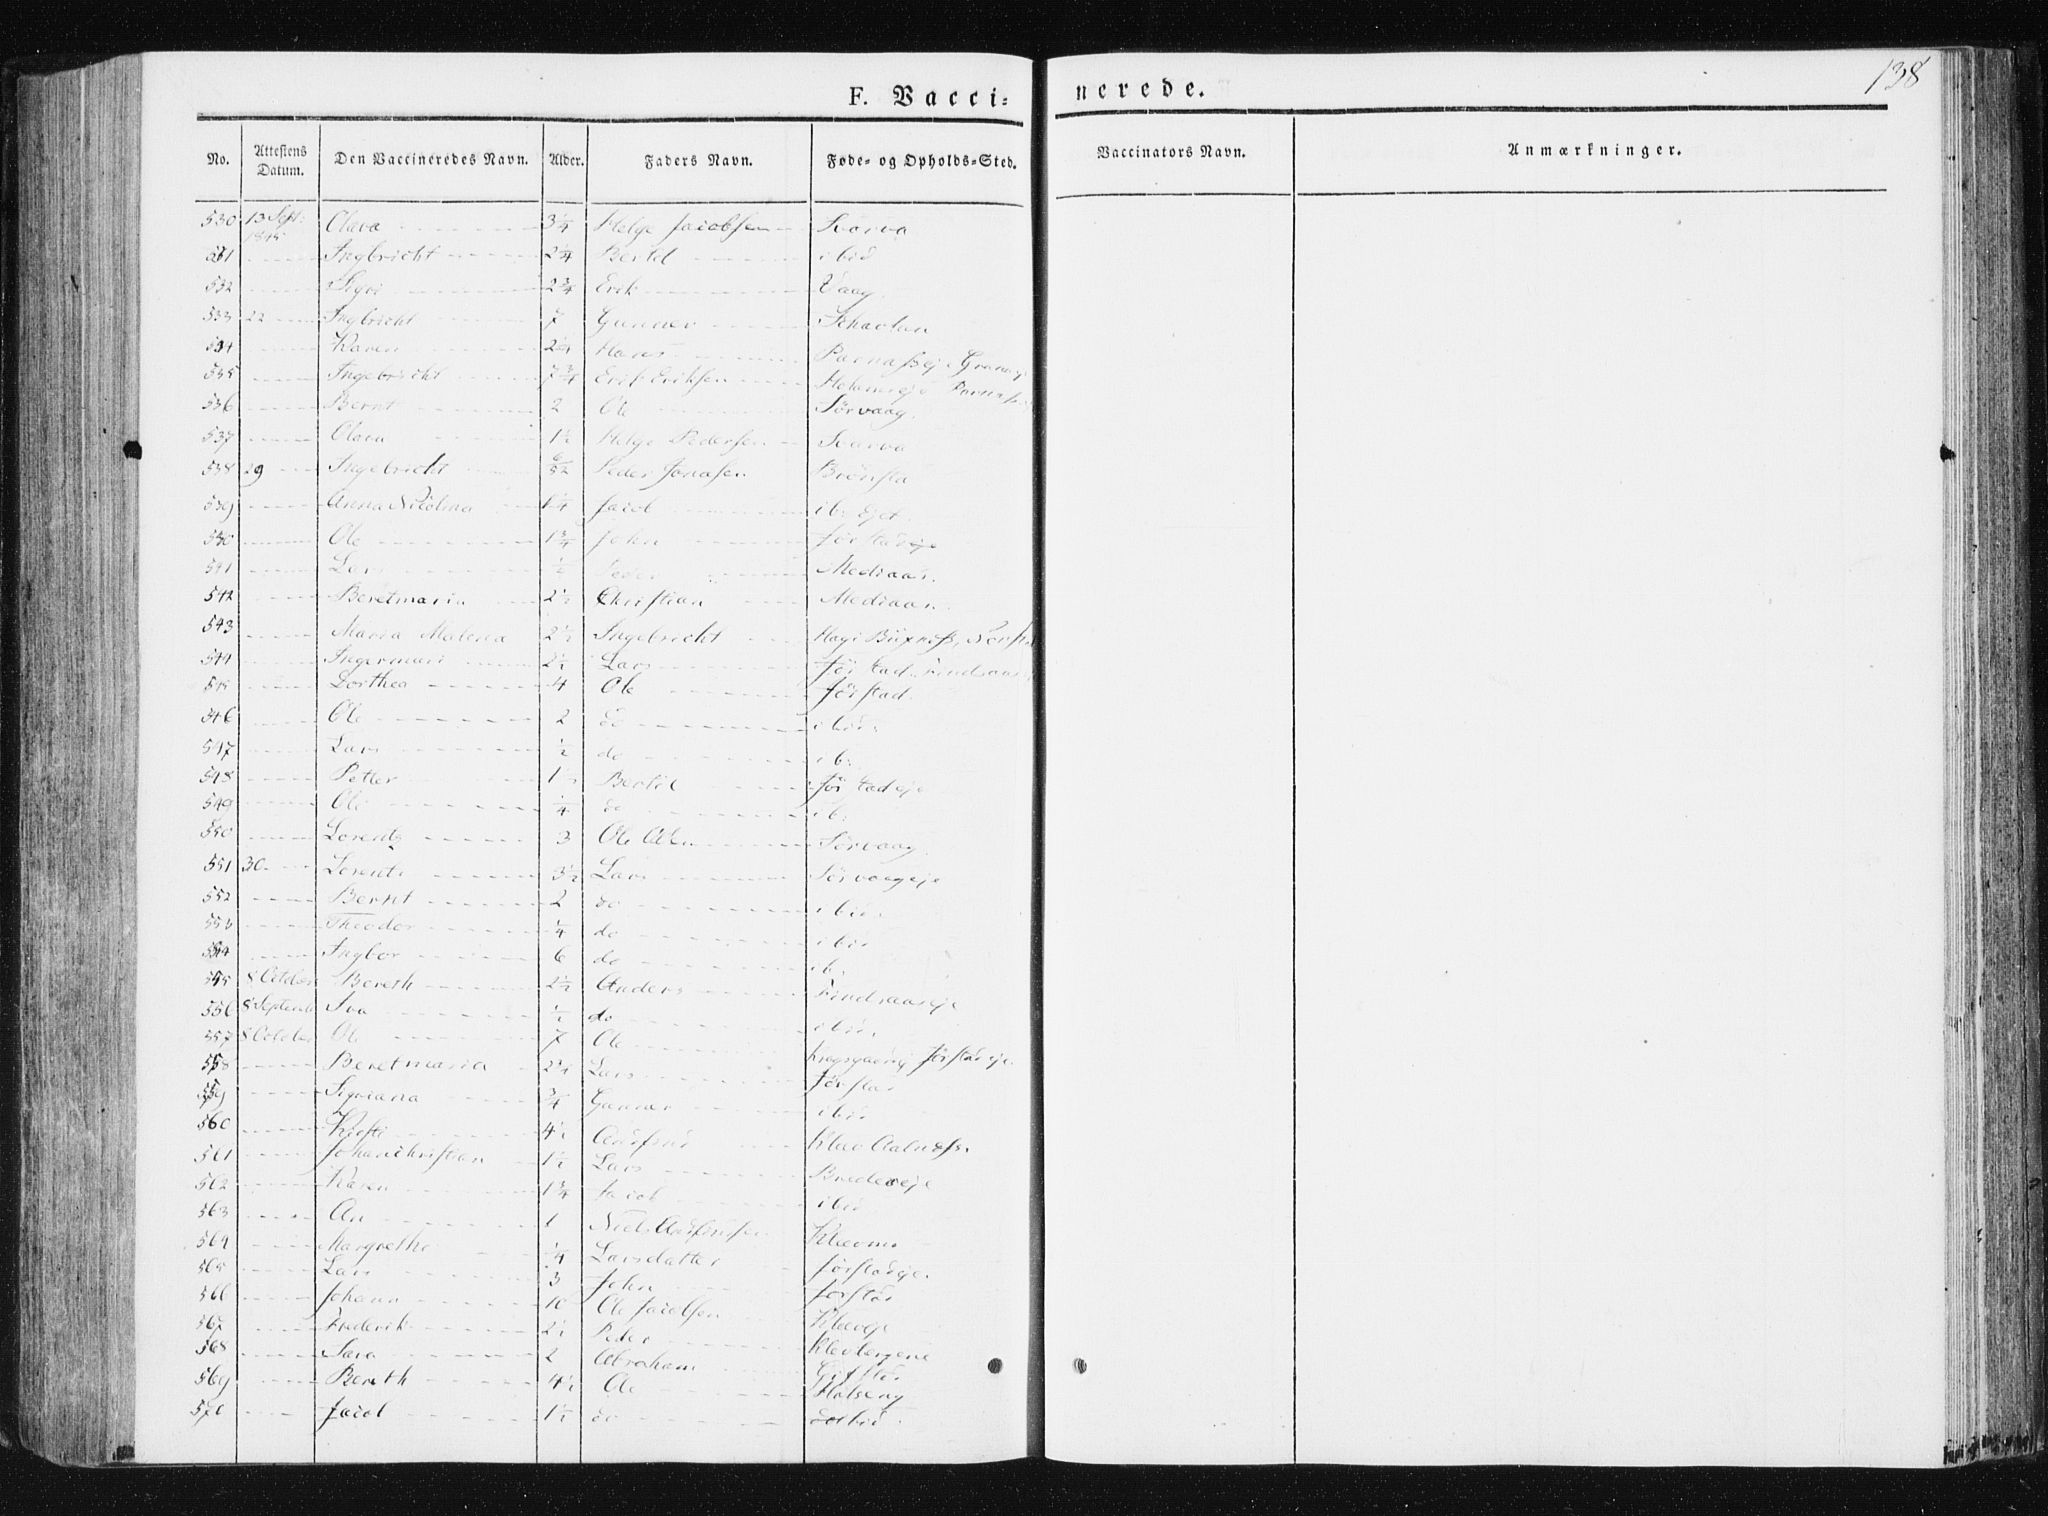 138
F. Vacci=nerede.
No. Attestens Datum. Den Vaccineredes Navn. Alder. Faders Navn. Føde- og Opholds-Sted. Vaccinators Navn. Anmærkninger.
530 13 Sept: 1845 Olava 3 1/4 Helge Jacobsen Svarva
531 Ingbricht 2 1/4 Bertel ibid
532 Sigri 2 3/4 Erik Vaag.
533 22 Ingbricht 7 Gunner
534 Karen 2 1/4 Hans
535 Ingebricht 7 3/4 Erik Eriksen
536 Bernt 2 Ole Sörvaag.
537 Olava 1 1/2 Helge Pedersen Svarva
538 29 Ingebricht 6/52 Peder Jonasen Brönsta
539 Anna Nicolina 1 1/4 Jacob ib: ejet.
540 Ole 1 3/4 John Jörstadeje
541 Lars 1/2 Peder Mediaas.
542 Beretmaria 2 1/2 Christian Mediaas.
543 Maria Malena 2 1/2 Ingebricht
544 Ingermari 2 1/2 Lars Jörstad
545 Dorthea 4 Ole Jörstad
546 Ole 2 do ibid:
547 Lars 1/2 do ib:
548 Petter 1 1/2 Bertil Jörstadeje
549 Ole 1/4 do ib:
550 Lorents 3 Ole Olsen Sörvaag.
551 30. Lorents 3 1/2 Lars Sörvaageje
552 Bernt 2 do ibid.
553 Theodor 1/4 do ibid
554 Ingbor 6 do ib.
555 8 October Bereth 2 1/2 Anders Findsaaseje
556 8 Septemb Iva 1/2 do ibid.
557 8 October Ole 7 Ole Jörstadeje.
558 Beretmaria 2 1/4 Lars Jörstad
559 Sigriana 3/4 Gunner ibid
560 Kirsti 4 1/2 Klev
561 Johanchristian 1 1/2 Lars Bredeseje
562 Karen 1 3/4 Jacob ibid
563 An 1 Niels
564 Margrethe 1/4 Larsdatter Jörstadeje.
565 Lars 3 John Jörstad
566 Johann 10 Ole Jacobsen
567 Frederik 2 1/2 Peder Kleveje
568 Sara 2 Abraham
569 Bereth 4 1/2 Ole
570 Jacob 1 1/2 do